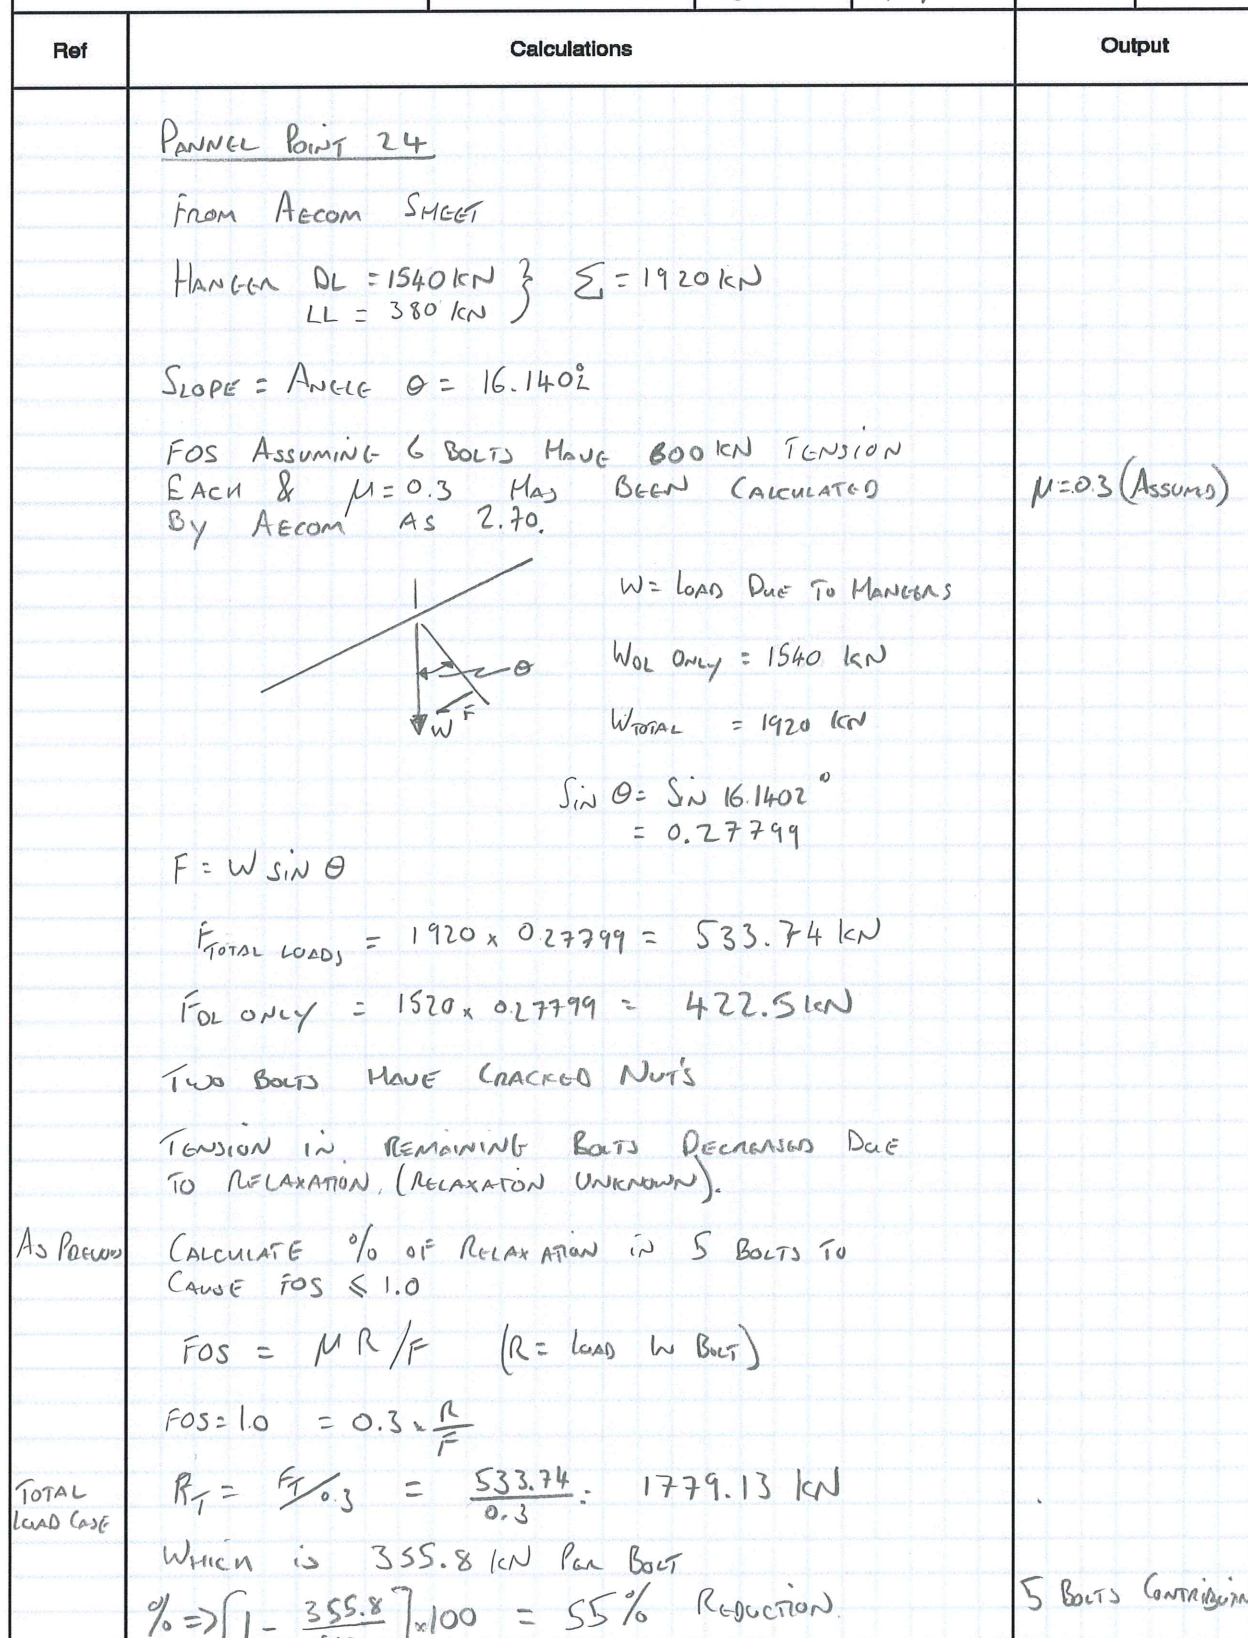 Ref Calculations Output
PANNEL POINT 24
FROM AECOM SHEET
HANGER DL = 1540 KN } Σ = 1920 KN
LL = 380 KN
SLOPE = ANGLE θ = 16.1402°
FOS ASSUMING 6 BOLTS HAVE 800 KN TENSION
EACH & μ = 0.3 HAS BEEN CALCULATED μ = 0.3 (ASSUMD)
BY AECOM AS 2.70.
W = LOAD DUE TO HANGERS
WDL ONLY = 1540 KN
θ
W F
WTOTAL = 1920 KN
SIN θ = SIN 16.1402°
= 0.27799
F = W SIN θ
FTOTAL LOADS = 1920 x 0.27799 = 533.74 KN
FDL ONLY = 1520 x 0.27799 = 422.5 KN
TWO BOLTS HAVE CRACKED NUT'S
TENSION IN REMAINING BOLTS DECREASED DUE
TO RELAXATION. (RELAXATON UNKNOWN).
AS CALCULATE % OF RELAXATION IN 5 BOLTS TO
CAUSE FOS ≤ 1.0
FOS = μR/F (R = LOAD IN BOLT)
FOS = 1.0 = 0.3 x R/F
TOTAL LOAD CASE
RT = FT/0.3 = 533.74/0.3 = 1779.13 KN
WHICH IS 355.8 KN PER BOLT
% => [1 - 355.8 ] x100 = 55% REDUCTION. 5 BOLTS